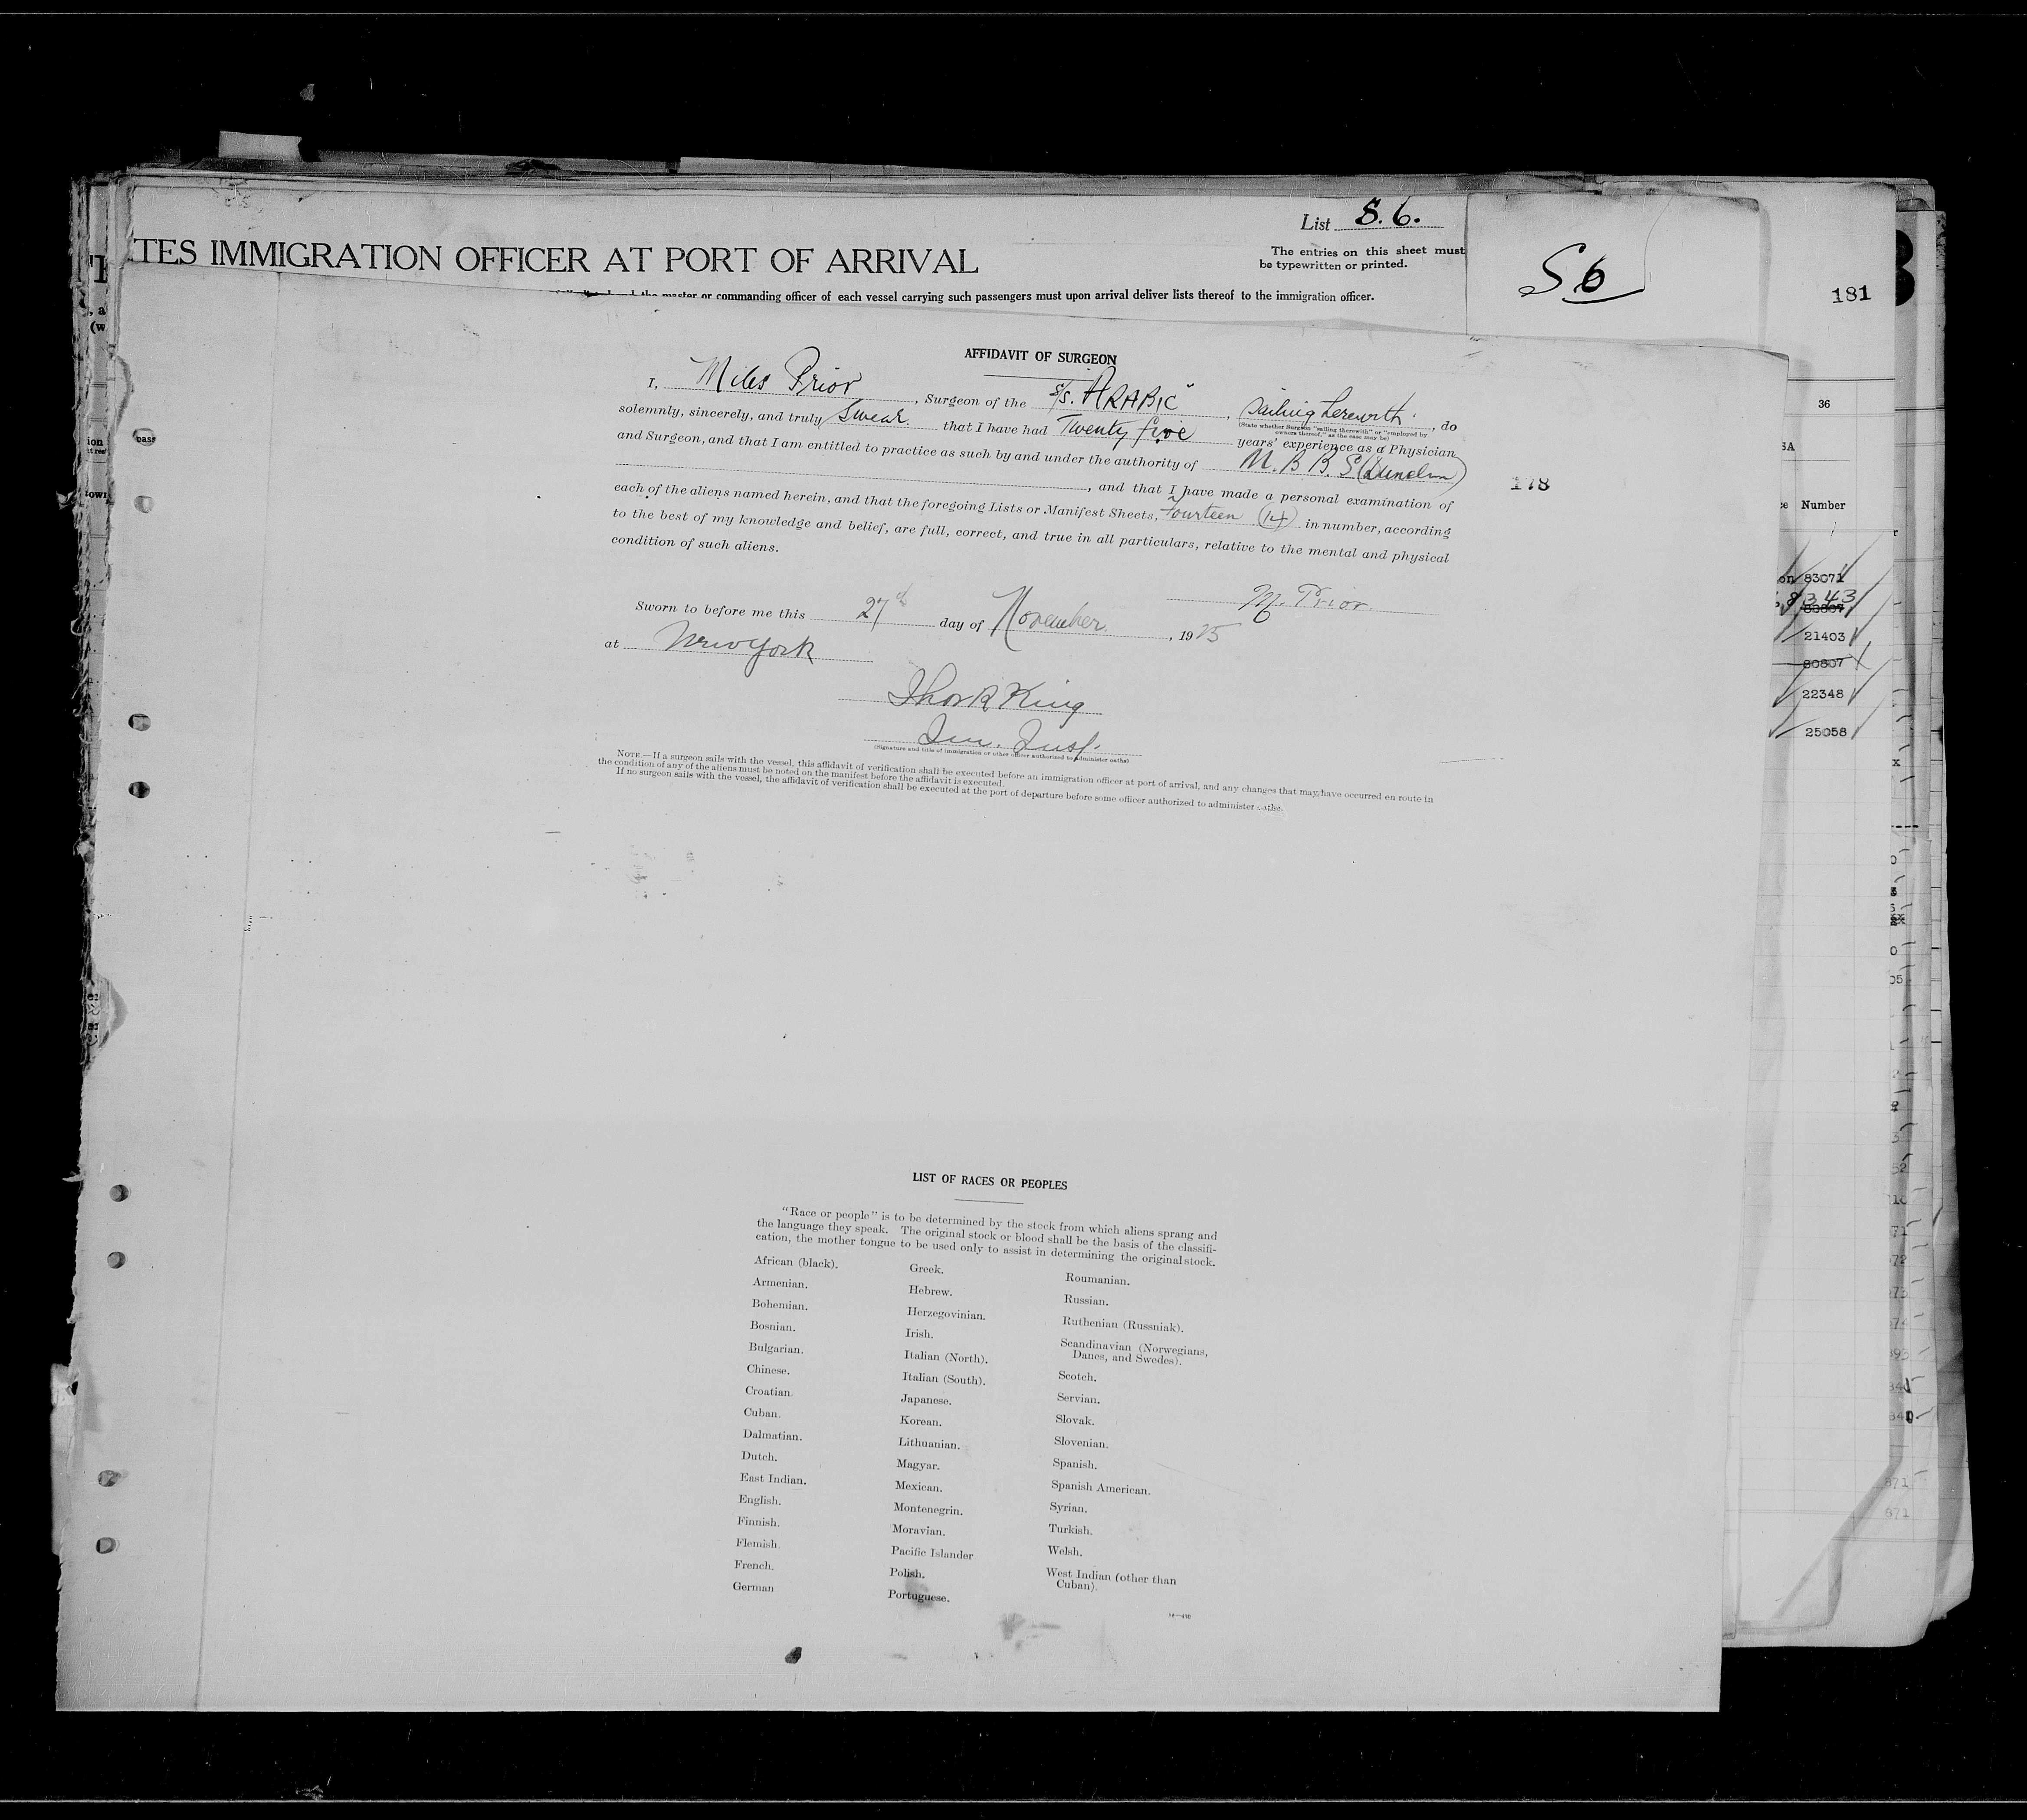 List S. 6.
TES IMMIGRATION OFFICER AT PORT OF ARRIVAL
The entries on this sheet must
be typewritten or printed.
S6
181
the master or commanding officer of each vessel carrying such passengers must upon arrival deliver lists thereof to the immigration officer.
AFFIDAVIT OF SURGEON
I, Miles Prior, Surgeon of the s/s. "ARABIC", sailing herewith, do
(State whether Surgeon "sailing therewith" or "employed by
owners thereof," as the case may be)
solemnly, sincerely, and truly swear that I have had Twenty five years' experience as a Physician
and Surgeon, and that I am entitled to practice as such by and under the authority of M. B B. S (Dunelm)
, and that I have made a personal examination of
each of the aliens named herein, and that the foregoing Lists or Manifest Sheets, fourteen (14) in number, according
to the best of my knowledge and belief, are full, correct, and true in all particulars, relative to the mental and physical
condition of such aliens.
M. Prior.
Sworn to before me this 27th day of November, 1925
at New York
Thos R King
Im. Insp.
(Signature and title of immigration or other officer authorized to administer oaths)
NOTE.—If a surgeon sails with the vessel, this affidavit of verification shall be executed before an immigration officer at port of arrival, and any changes that may have occurred en route in
the condition of any of the aliens must be noted on the manifest before the affidavit is executed.
If no surgeon sails with the vessel, the affidavit of verification shall be executed at the port of departure before some officer authorized to administer oaths.
178
36
Number
83071
8343
80807
21403
80807
22348
25058
LIST OF RACES OR PEOPLES
"Race or people" is to be determined by the stock from which aliens sprang and
the language they speak. The original stock or blood shall be the basis of the classifi-
cation, the mother tongue to be used only to assist in determining the original stock.
African (black).
Armenian.
Bohemian.
Bosnian.
Bulgarian.
Chinese.
Croatian.
Cuban.
Dalmatian.
Dutch.
East Indian.
English.
Finnish.
Flemish.
French.
German
Greek.
Hebrew.
Herzegovinian.
Irish.
Italian (North).
Italian (South).
Japanese.
Korean.
Lithuanian.
Magyar.
Mexican.
Montenegrin.
Moravian.
Pacific Islander
Polish.
Portuguese.
Roumanian.
Russian.
Ruthenian (Russniak).
Scandinavian (Norwegians,
Danes, and Swedes).
Scotch.
Servian.
Slovak.
Slovenian.
Spanish.
Spanish American.
Syrian.
Turkish.
Welsh.
West Indian (other than
Cuban).